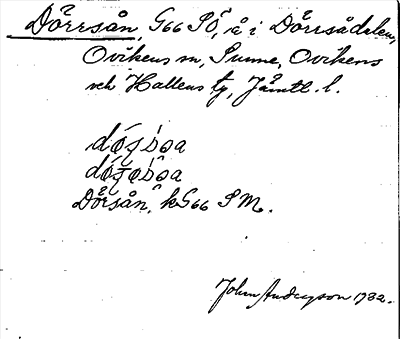 Dörrsån, G66 SÖ, å i Dörrsådalen,
Ovikens sn, Sunne, Ovikens
och Hallens tg, Jämtl. l.
Dörsån, kG66 SM.
John Andersson 1932.